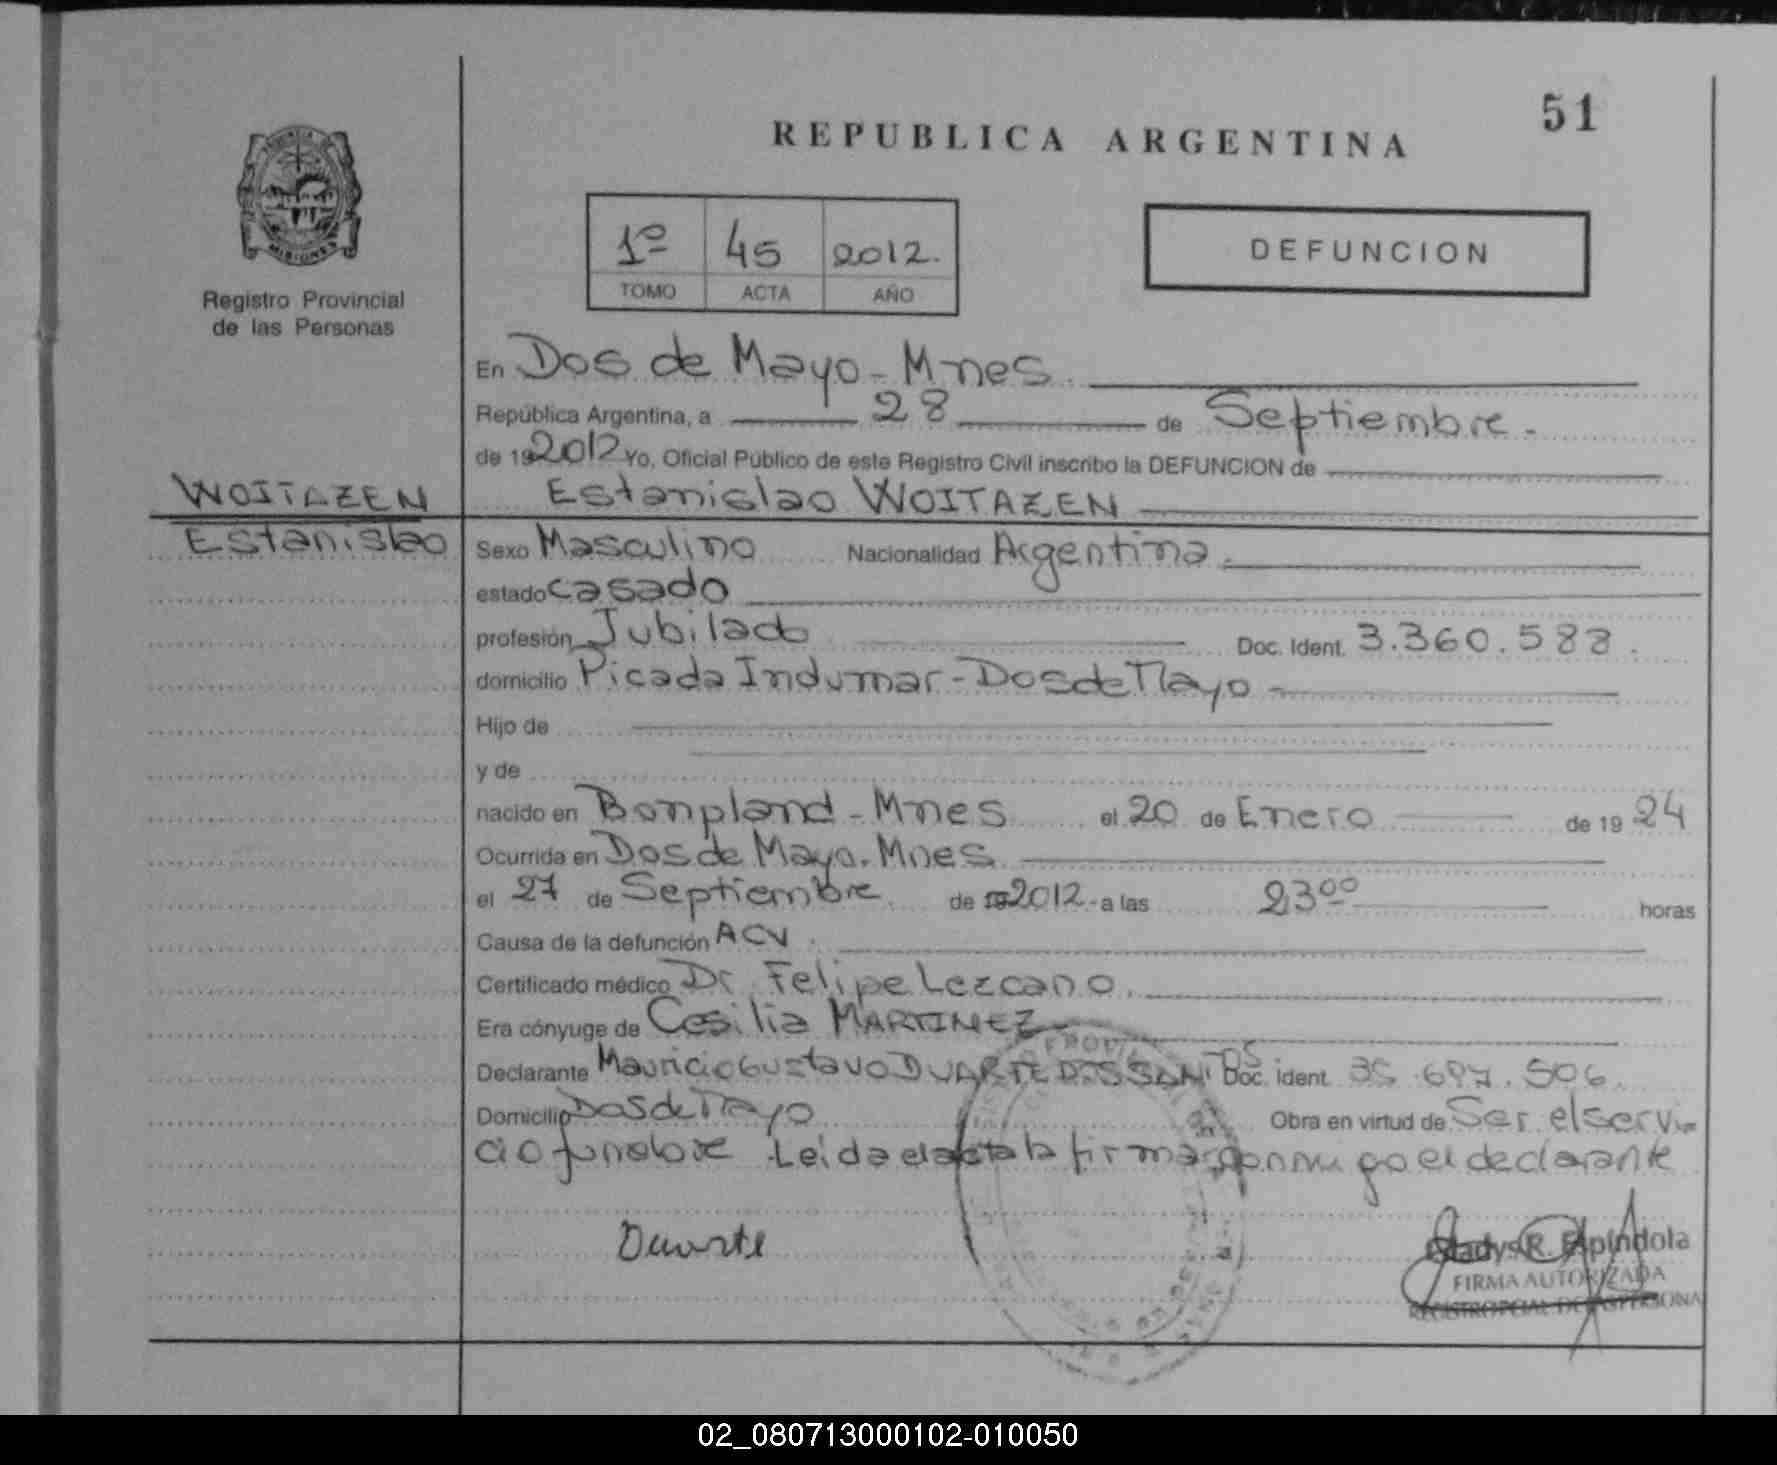 51
REPUBLICA ARGENTINA
MISIONES
Registro Provincial
de las Personas
1º 45 2012.
TOMO ACTA AÑO
DEFUNCION
En Dos de Mayo - Mnes.
República Argentina, a 28 de Septiembre.
de 192012 Yo, Oficial Público de este Registro Civil inscribo la DEFUNCION de
WOITAZEN
Estanislao WOITAZEN
Estanislao
Sexo Masculino Nacionalidad Argentina.
estado casado
profesión Jubilado Doc. Ident. 3.360.588.
domicilio Picada Indumar - Dos de Mayo -
Hijo de
y de
nacido en Bonpland - Mnes el 20 de Enero de 19 24
Ocurrida en Dos de Mayo. Mnes
el 27 de Septiembre de 19 2012.- a las 23⁰⁰ horas
Causa de la defunción ACV.
Certificado médico Dr. Felipe Lezcano.
Era cónyuge de Cesilia MARTINEZ
Declarante Mauricio Gustavo DUARTE DOS SANTOS Doc. ident. 35.697.506
Domicilio Dos de Mayo Obra en virtud de Ser el servi-
cio funebre. Leida el acta la firma conmigo el declarante
Duarte
Gladys R. Espíndola
FIRMA AUTORIZADA
REGISTRO PCIAL DE LAS PERSONA
02_080713000102-010050